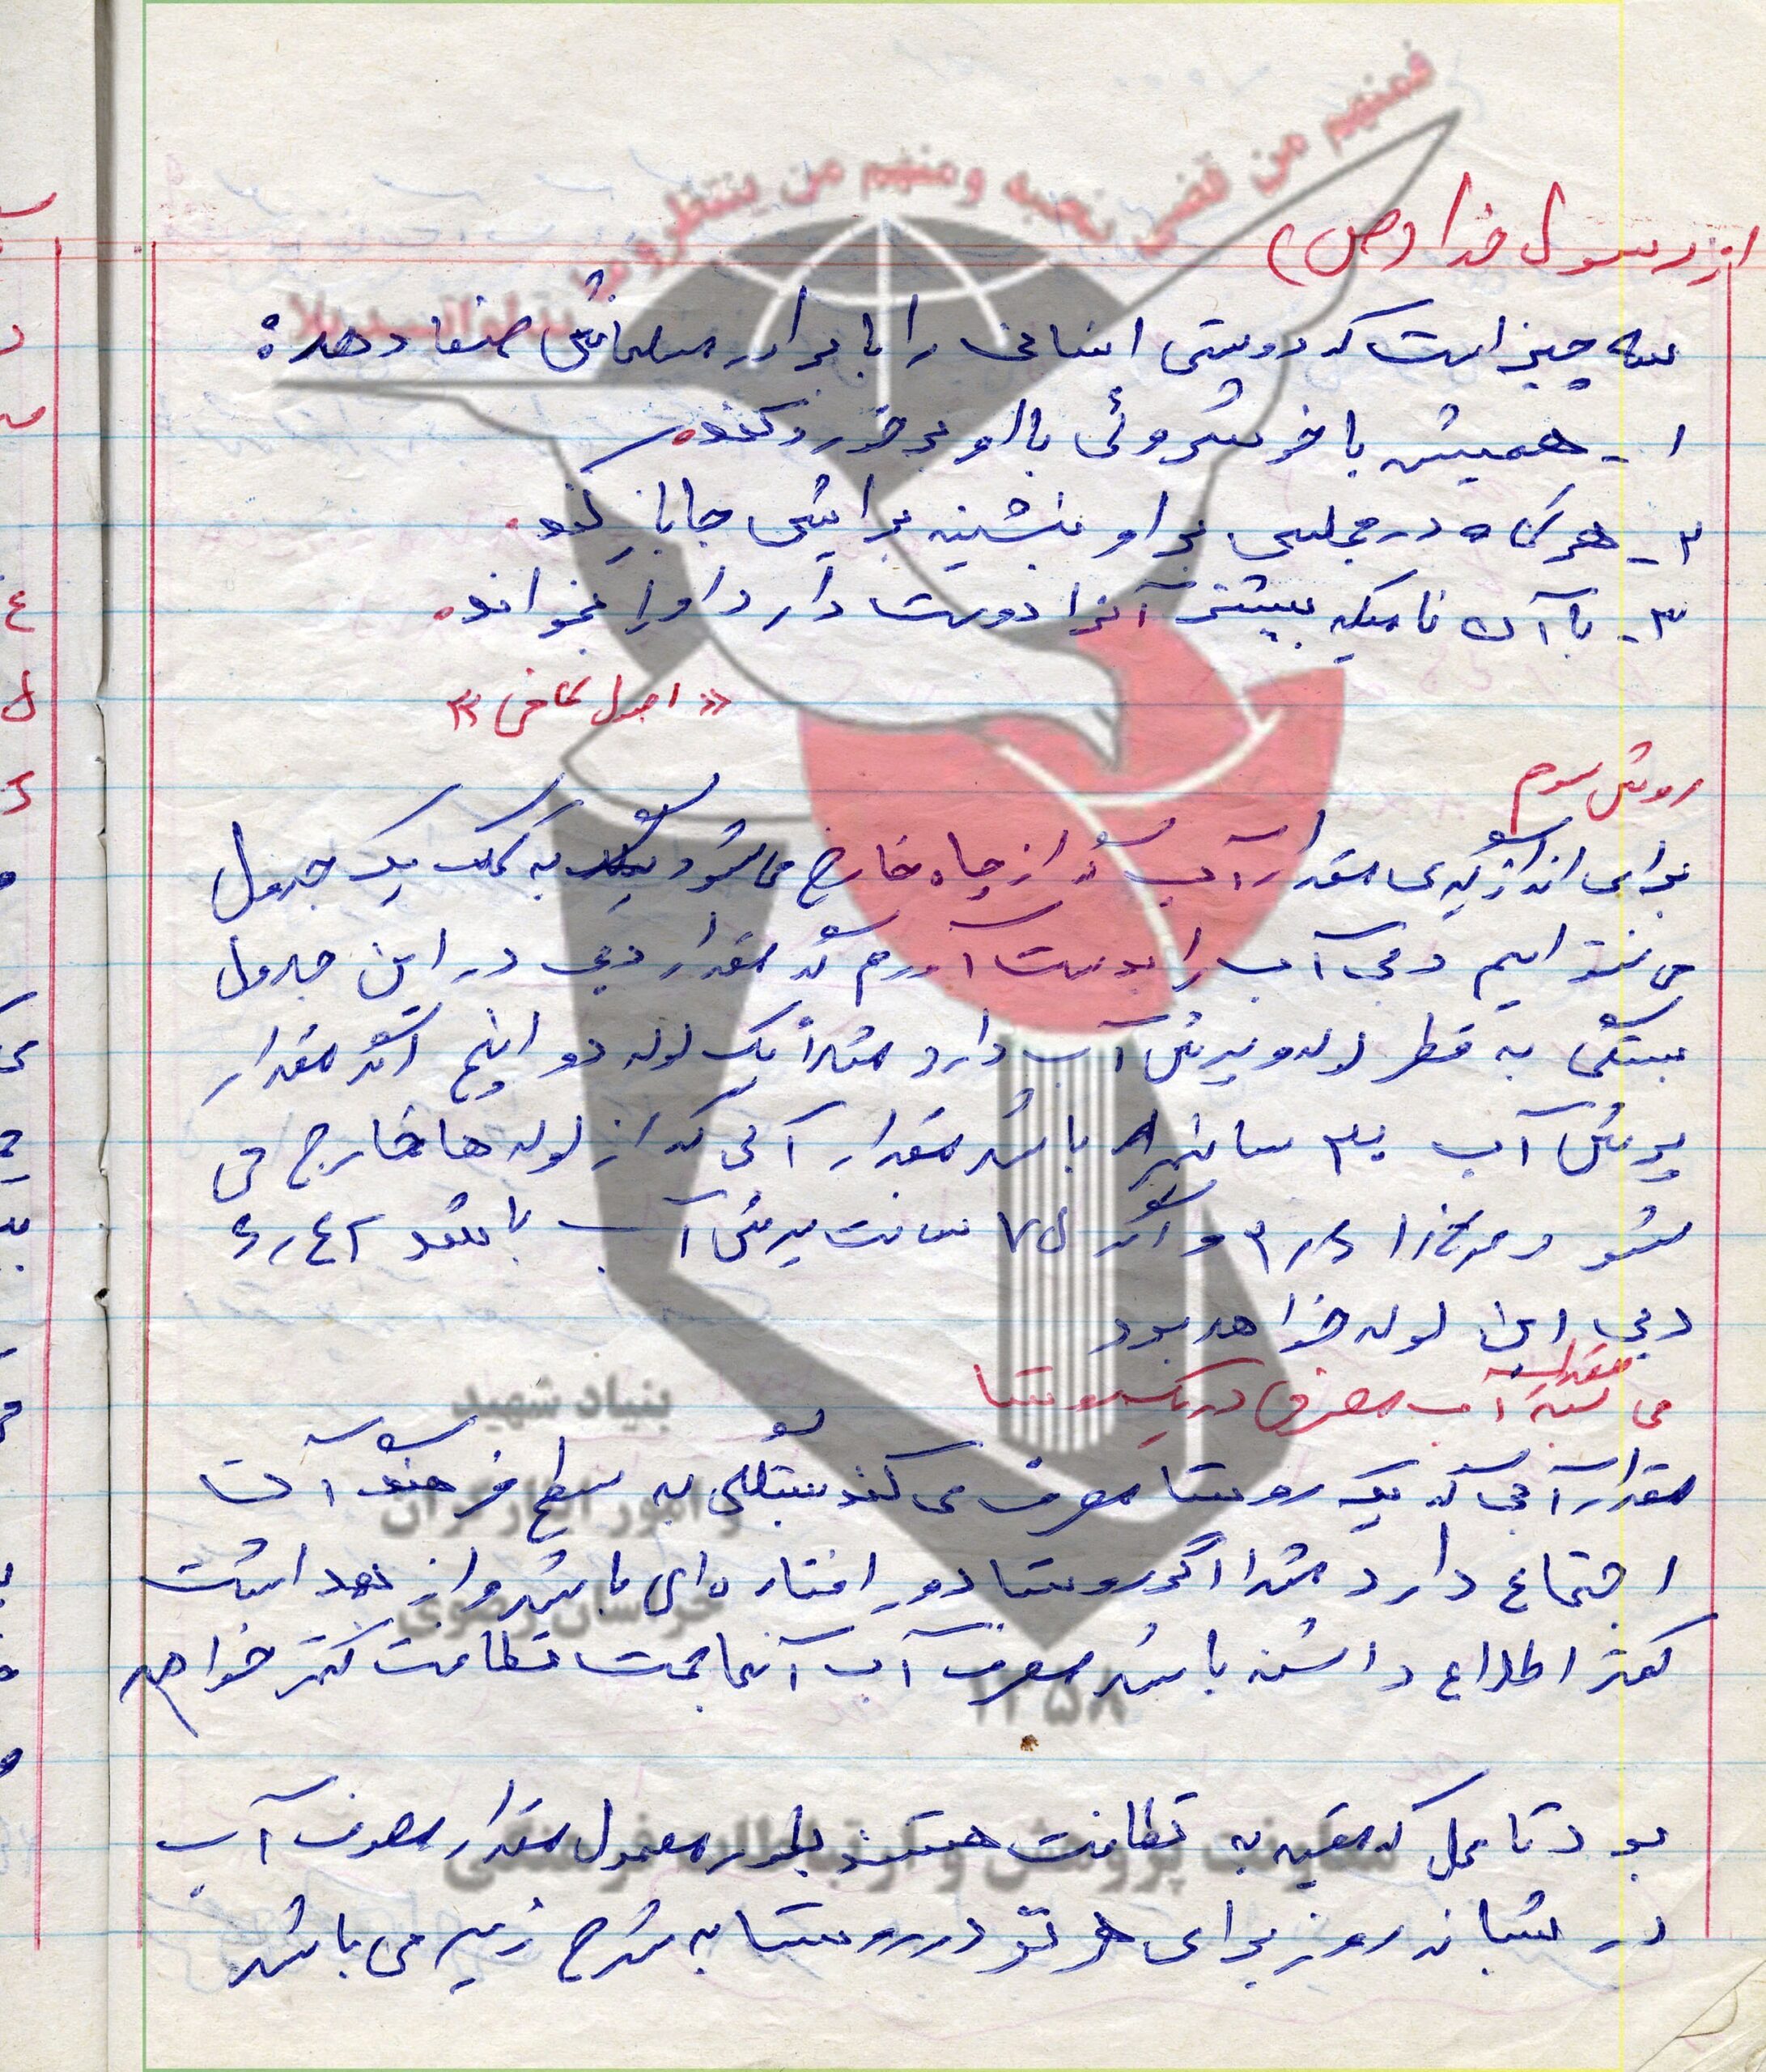 فمنهم من قضی نحبه ومنهم من ینتظر و ما بدلوا تبدیلا
از رسول خدا (ص)
سه چیز است که دوستی انسانی را با برادر مسلمانش صفا دهد:
۱- همیشه با خوشروئی با او برخورد کند.
۲- هرگاه در مجلسی بر او بنشیند برایش جا باز کند.
۳- با آن نامیکه بیشتر آنرا دوست دارد او را بخواند.
«اصول کافی»
روش سوم
برای اندازیگیری مقدار آب که از چاه خارج می شود به کمک یک جدول
می توانیم دبی آب را بدست آورم که مقدار دبی در این جدول
بستگی به قطر لوله و پرش آب دارد مثلاً یک لوله دو اینچ اگر مقدار
پرش آب ۳۰ سانتیمتر باشد مقدار آبی که از لوله ها خارج می
شود و اگر ۷۵ سانت پرش آب باشد
دبی این لوله خواهد بود
مقدار آب مصرفی در یک روستا
مقدار آبی که یک روستا مصرف می کند بستگی به سطح فرهنگ آن
اجتماع دارد مثلا اگر روستا دور افتاده ای باشد و از بهداشت
کمتر اطلاع داشته باشد مصرف آب آنها جهت نظافت کمتر خواهد
بود تا محل که مقید به نظافت هستند بطور معمول مقدار مصرف آب
در شبانه روز برای هر نفر در روستا به شرح زیر می باشد
بنیاد شهید
و امور ایثارگران
خراسان رضوی
۱۳۵۸